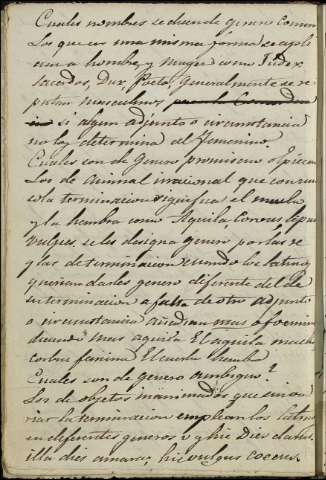 Cuales nombres se dicen de genero Comun
Los que en una misma forma se apli
can a hombre, y muger como Judex
sacerdos, Dux, Poeta; generalmente se re
putan masculinos
si algun adjunto o circunstancia
no los determina al femenino.
Cuales son de Genero promiscuo o Epiceno
Los de animal irracional que con una
sola terminacion significa el macho
y la hembra como Aquila, Corvus, lepus
vulpes, se les designa genero por las re
glas de terminacion cuando los latinos
querian darles genero diferente del de
su terminacion a falta de otro adjunto
o circunstancia añadian mas o foemina
diciendo mas aquila El aguila macho
corbus femina El cuerbo hembra
Cuales son de genero ambiguo?
Los de objetos inanimados que sin va
riar la terminacion emplean los latinos
en diferentes generos v g hic dies clarus
illa dies amara; hic vulgus coecus